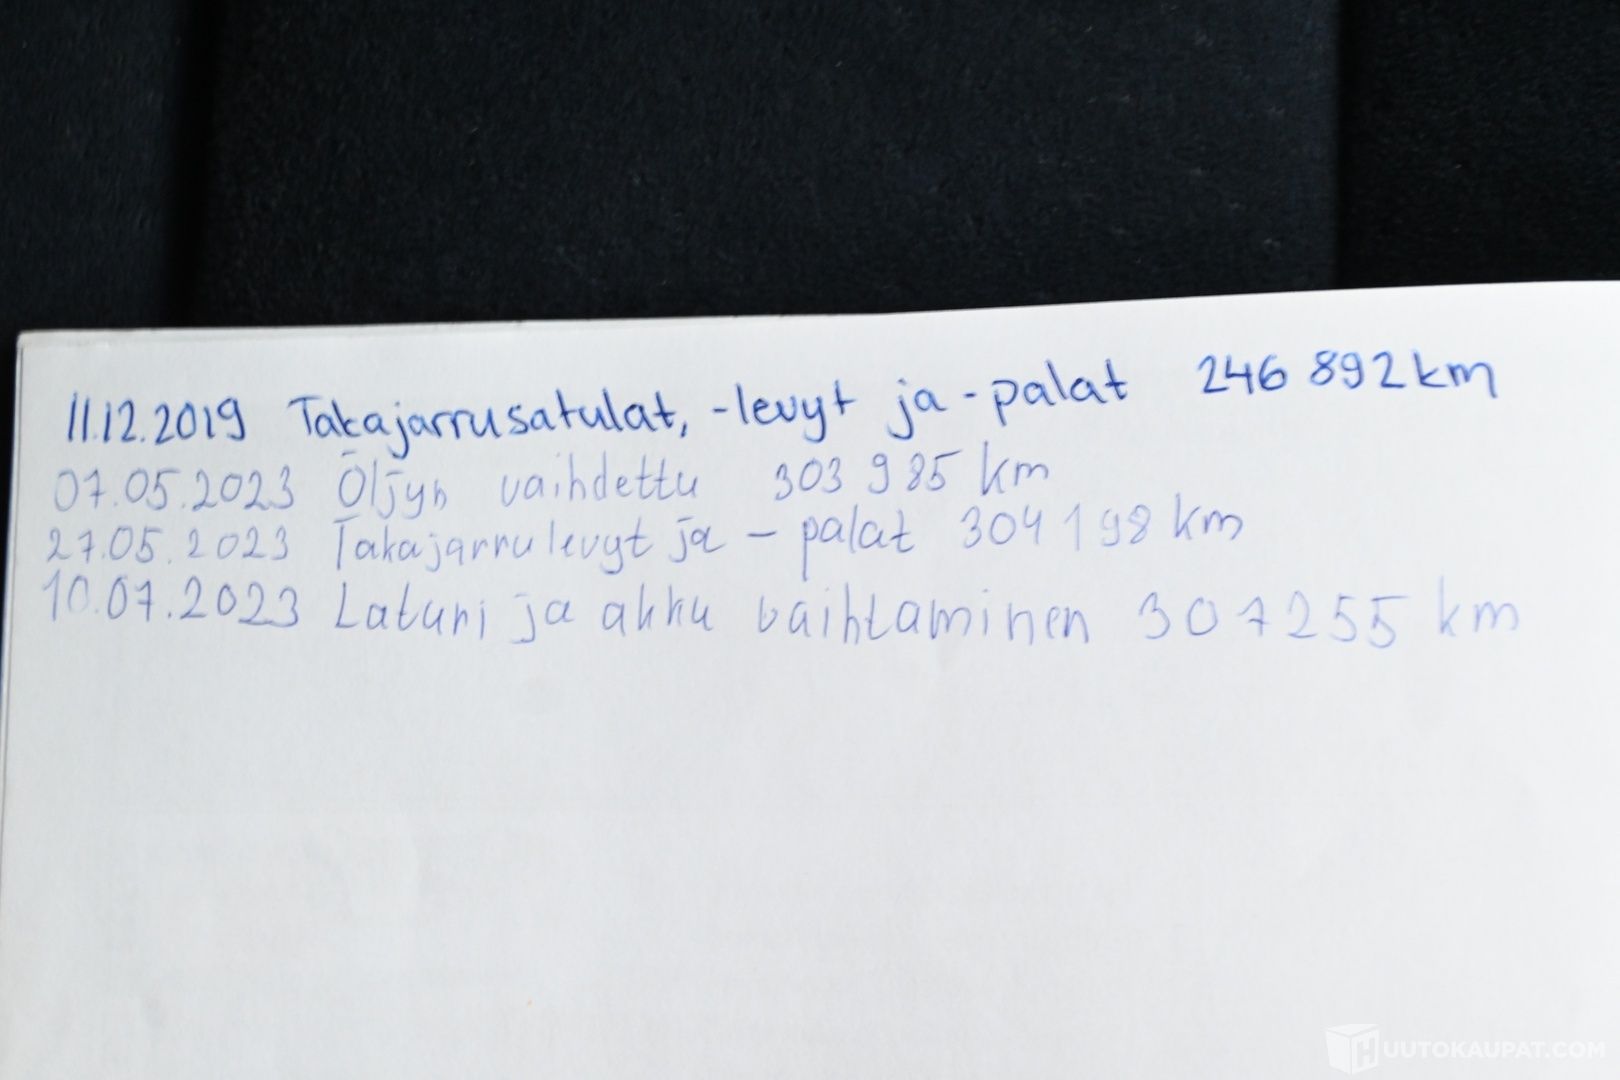 11.12.2019 Takajarrusatulat, -levyt ja -palat 246 892 km
07.05.2023 Öljyn vaihdettu 303 985 km
27.05.2023 Takajarrulevyt ja - palat 304 198 km
10.07.2023 Laturi ja akku vaihtaminen 307255 km
HUUTOKAUPAT.COM